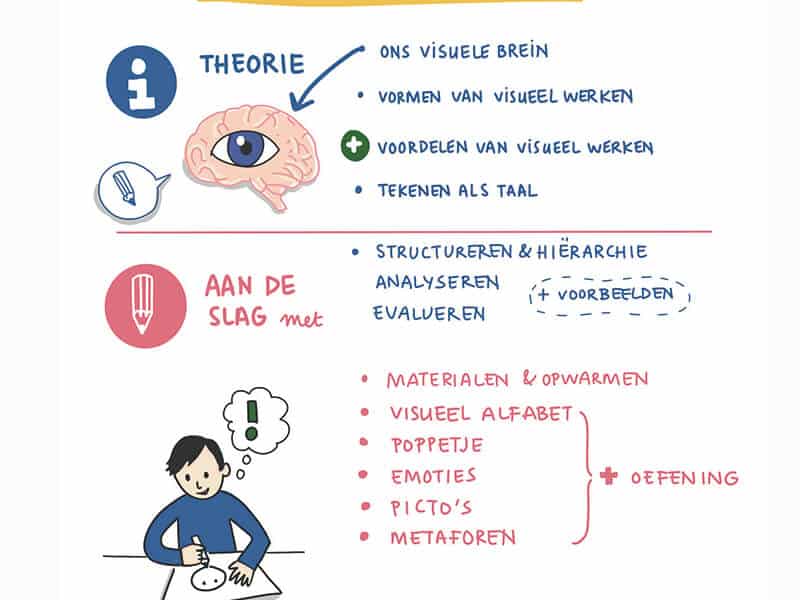 i
THEORIE
• ONS VISUELE BREIN
• VORMEN VAN VISUEEL WERKEN
+ VOORDELEN VAN VISUEEL WERKEN
• TEKENEN ALS TAAL
AAN DE
SLAG met
• STRUCTUREREN & HIËRARCHIE
ANALYSEREN
EVALUEREN
+ VOORBEELDEN
• MATERIALEN & OPWARMEN
• VISUEEL ALFABET
• POPPETJE
• EMOTIES
• PICTO'S
• METAFOREN
+ OEFENING
!